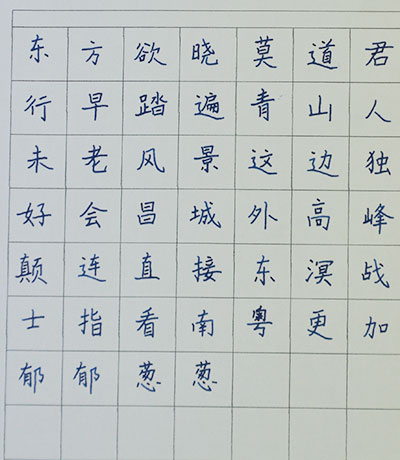 东方欲晓莫道君
行早踏遍青山人
未老风景这边独
好会昌城外高峰
颠连直接东溟战
士指看南粤更加
郁郁葱葱